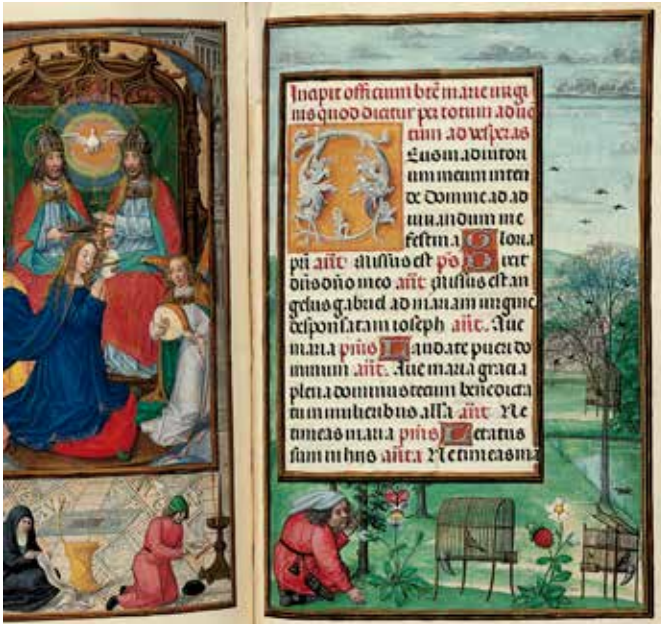 Incipit officium bte marie uirgi
nis quod dicitur per totum aduē
tum ad vesperas
Deus in adiutori
um meum inten
de Domine ad ad
iuuandum me
festina Gloria
pri añt Missus est ps Dixit
dñs dño meo añt Missus est an
gelus gabriel ad mariam uirginē
desponsatam ioseph añt. Aue
maria pmus Laudate pueri do
minum añt. Aue maria gracia
plena dominus tecum benedicta
tu in mulieribus alla añt Ne
timeas maria pmus Letatus
sum in hiis añta Ne timeas ma